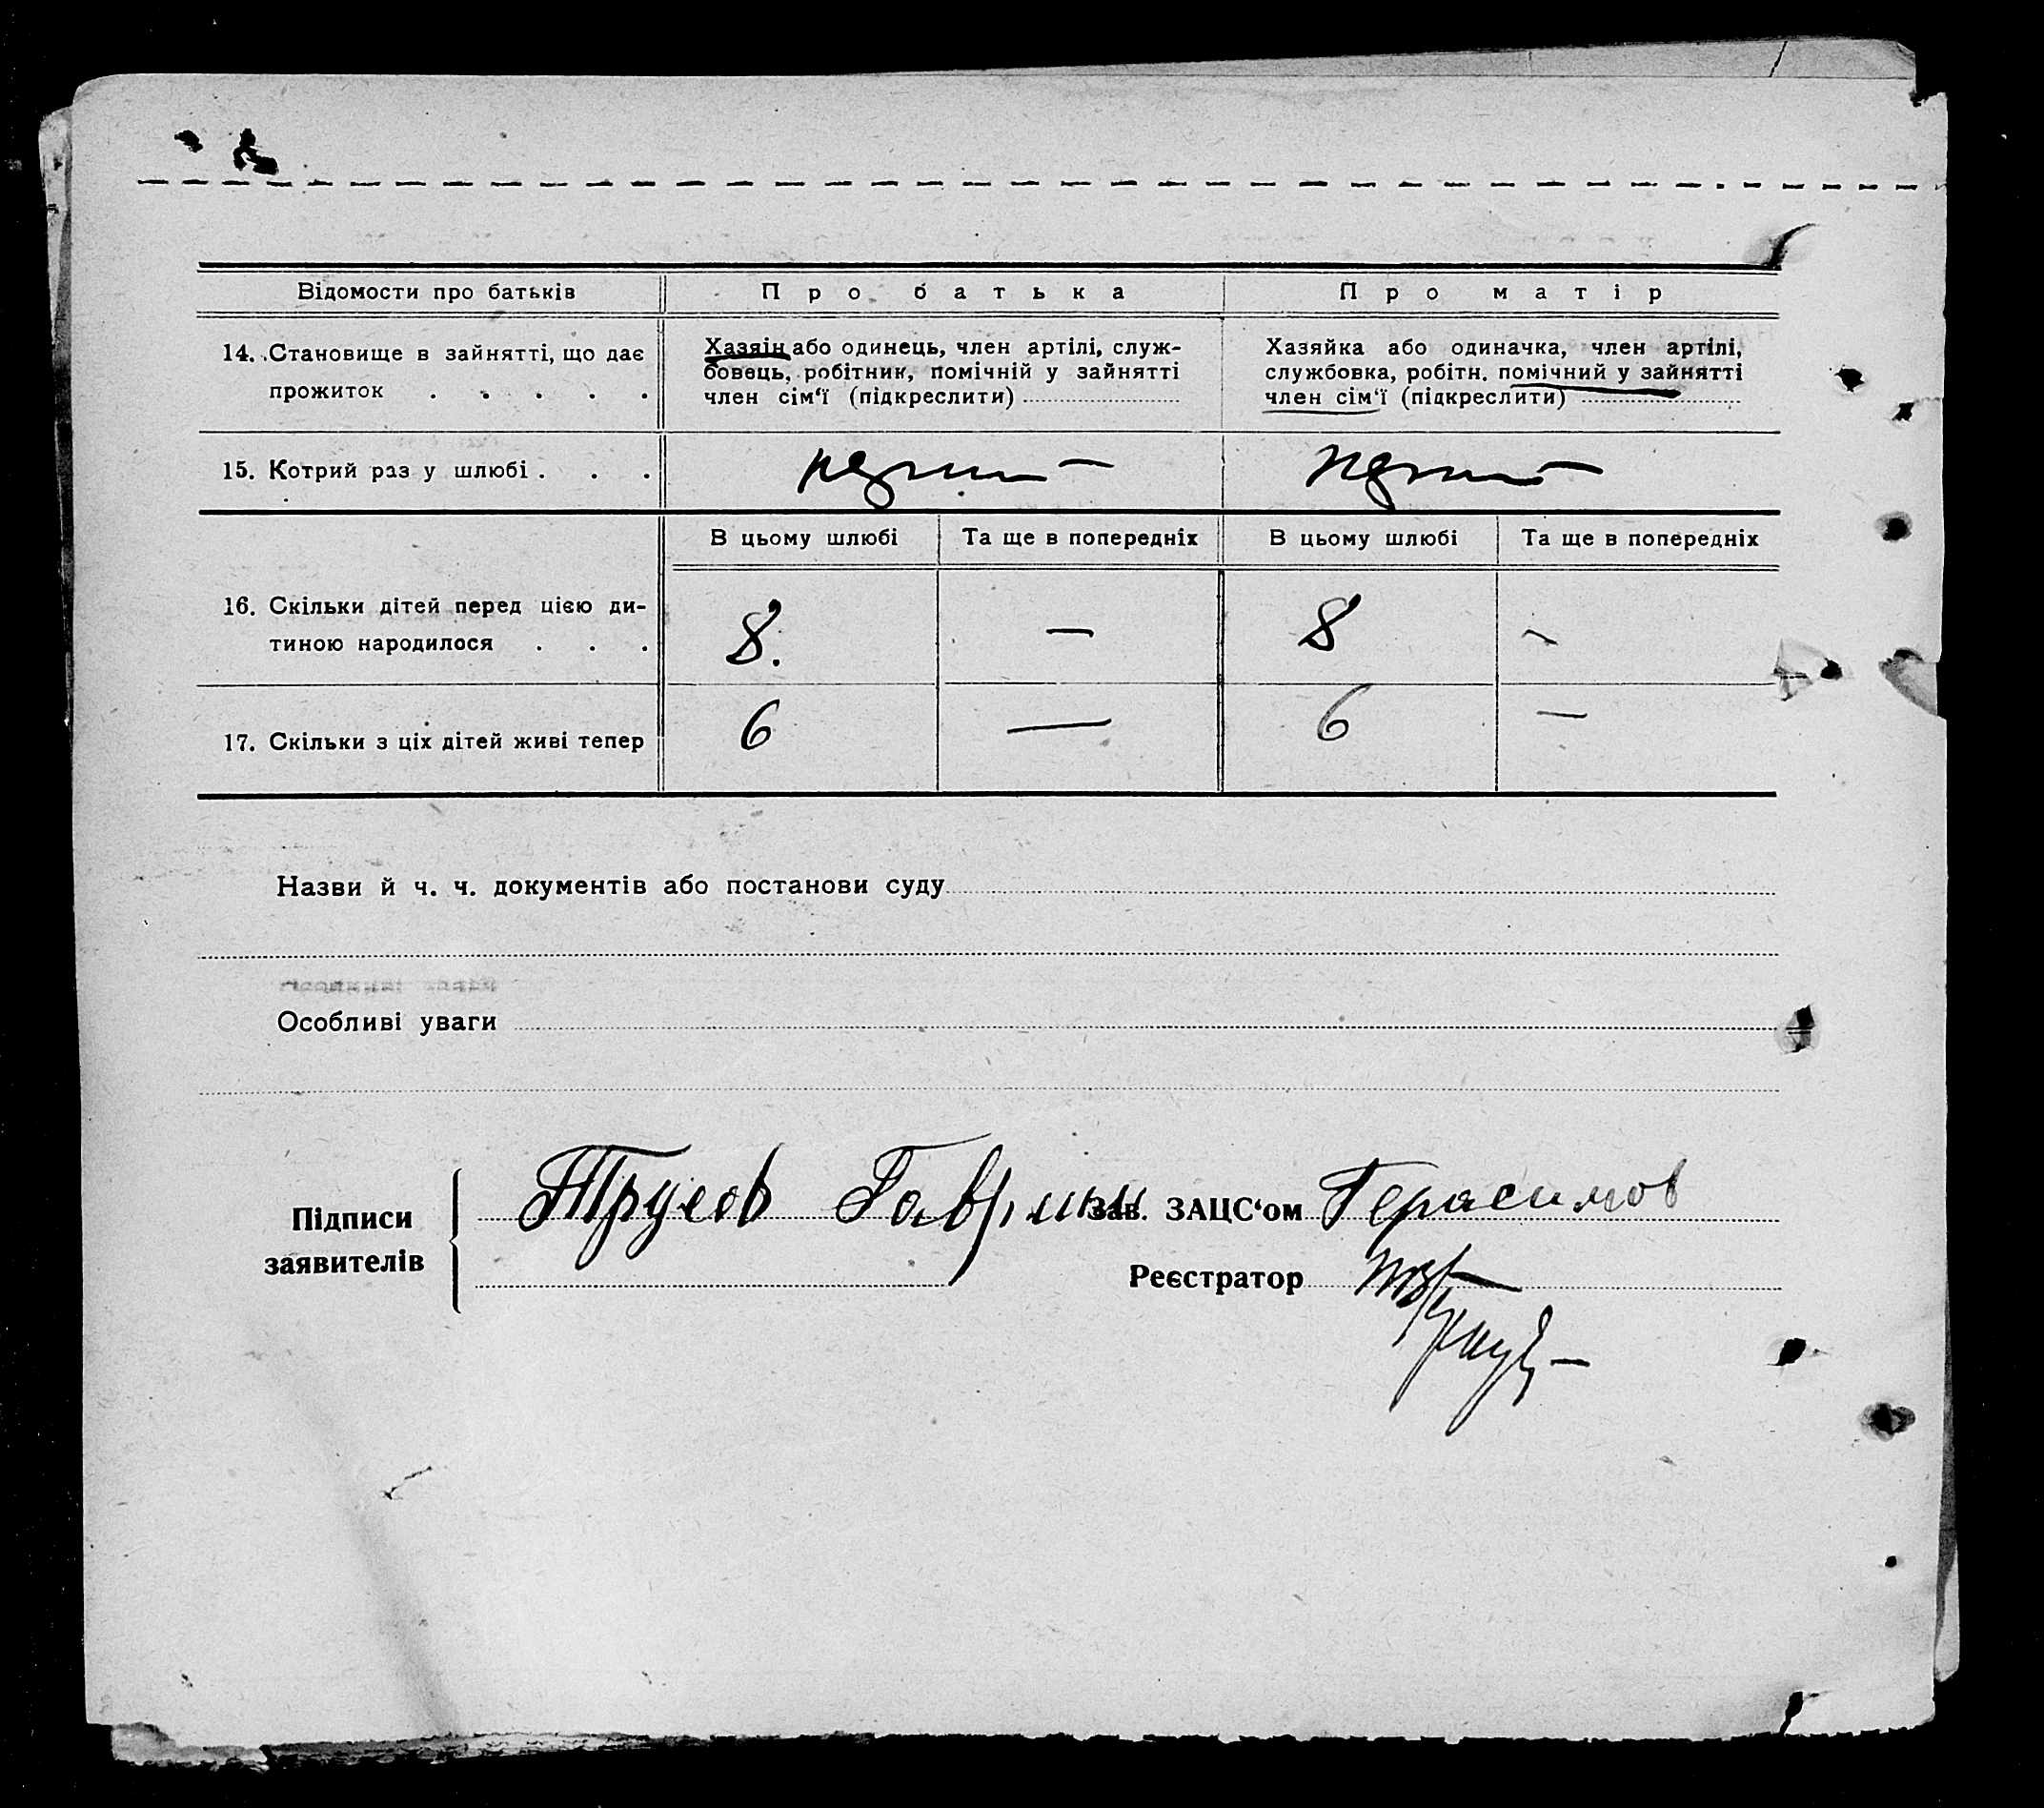 Відомости про батьків Про батька Про матір
14. Становище в зайнятті, що дає прожиток . . . . .
Хазяін або одинець, член артілі, служ-
бовець, робітник, помічній у зайнятті
член сім‘ї (підкреслити)
Хазяйка або одиначка, член артілі,
службовка, робітн. помічний у зайнятті
член сім‘ї (підкреслити)
15. Котрий раз у шлюбі . . .
В цьому шлюбі Та ще в попередніх В цьому шлюбі Та ще в попередніх
16. Скільки дітей перед цією ди-
тиною народилося . . .
8. — 8 —
17. Скільки з ціх дітей живі тепер 6 — 6 —
Назви й ч. ч. документів або постанови суду
Особливі уваги
Підписи
заявителів
Зав. ЗАЦС‘ом Герасимов
Реєстратор